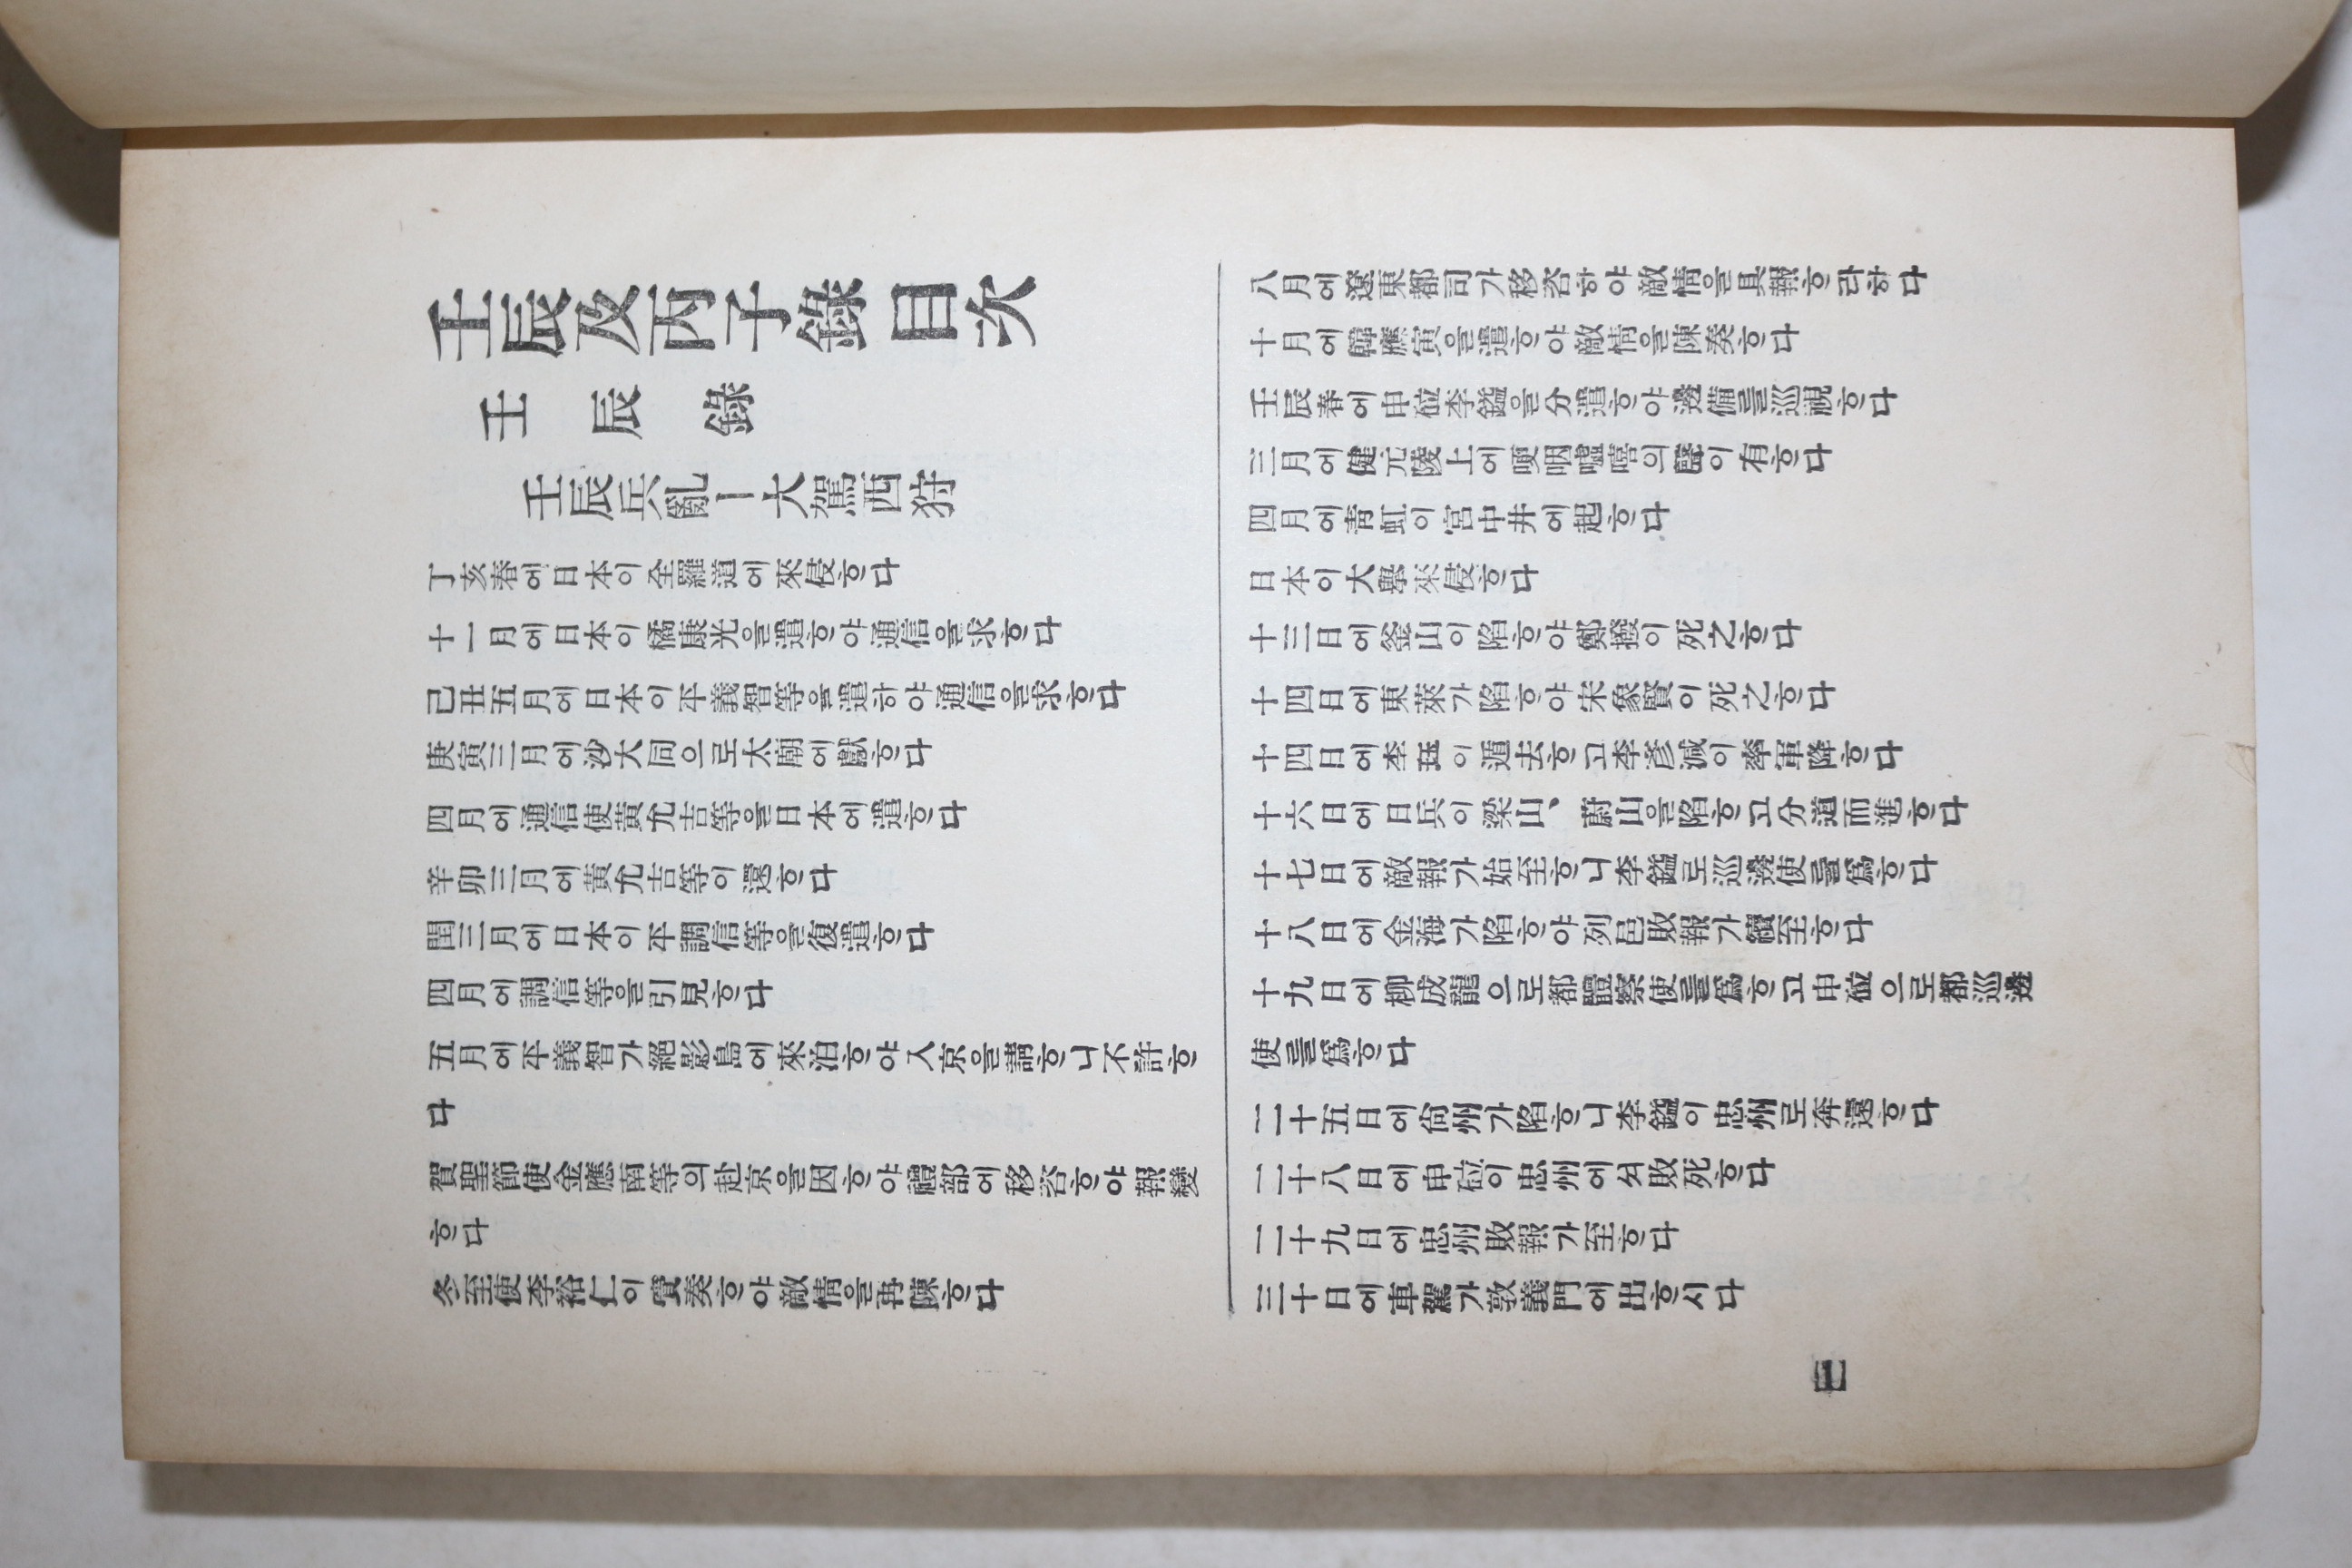 壬辰及丙子錄目次
壬辰錄
壬辰兵亂ー大駕西狩
丁亥春에日本이全羅道에來侵ᄒᆞ다
十一月에日本이橘康光을遣ᄒᆞ야通信을求ᄒᆞ다
己丑五月에日本이平義智等을遣하야通信을求ᄒᆞ다
庚寅三月에沙大同으로太廟에獻ᄒᆞ다
四月에通信使黃允吉等을日本에遣ᄒᆞ다
辛卯三月에黃允吉等이還ᄒᆞ다
閏三月에日本이平調信等을復遣ᄒᆞ다
四月에調信等을引見ᄒᆞ다
五月에平義智가絕影島에來泊ᄒᆞ야入京을請ᄒᆞ니不許ᄒᆞ
다
賀聖節使金應南等의赴京을因ᄒᆞ야禮部에移咨ᄒᆞ야報變
ᄒᆞ다
冬至使李裕仁이賫奏ᄒᆞ야敵情을再陳ᄒᆞ다
八月에遼東都司가移咨하야敵情을具報ᄒᆞ라하다
十月에韓應寅을遣ᄒᆞ야敵情을陳奏ᄒᆞ다
壬辰春에申砬李鎰을分遣ᄒᆞ야邊備를巡視ᄒᆞ다
三月에健元陵上에哽咽噓嘻의聲이有ᄒᆞ다
四月에靑虹이宮中井에起ᄒᆞ다
日本이大擧來侵ᄒᆞ다
十三日에釜山이陷ᄒᆞ야鄭撥이死之ᄒᆞ다
十四日에東萊가陷ᄒᆞ야宋象賢이死之ᄒᆞ다
十四日에李珏이遁去ᄒᆞ고李彥減이率軍降ᄒᆞ다
十六日에日兵이梁山、蔚山을陷ᄒᆞ고分道而進ᄒᆞ다
十七日에敵報가始至ᄒᆞ니李鎰로巡邊使를爲ᄒᆞ다
十八日에金海가陷ᄒᆞ야列邑敗報가續至ᄒᆞ다
十九日에柳成龍으로都體察使를爲ᄒᆞ고申砬으로都巡邊
使를爲ᄒᆞ다
二十五日에尙州가陷ᄒᆞ니李鎰이忠州로奔還ᄒᆞ다
二十八日에申砬이忠州에셔敗死ᄒᆞ다
二十九日에忠州敗報가至ᄒᆞ다
三十日에車駕가敦義門에出ᄒᆞ시다